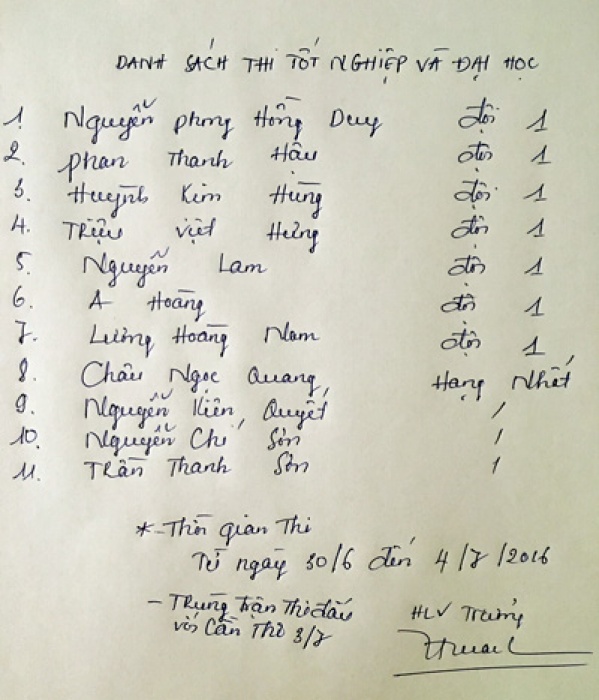 DANH SÁCH THI TỐT NGHIỆP VÀ ĐẠI HỌC
1. Nguyễn phong Hồng Duy đội 1
2. Phan Thanh Hậu đội 1
3. Huỳnh Kim Hùng đội 1
4. Triệu việt Hưng đội 1
5. Nguyễn Lam đội 1
6. A Hoàng đội 1
7. Lương Hoàng Nam đội 1
8. Châu Ngọc Quang Hạng Nhất
9. Nguyễn Kiên Quyết /
10. Nguyễn Chí Sơn /
11. Trần Thanh Sơn /
*-Thời gian Thi
Từ ngày 30/6 đến 4/7/2016
- Trùng trận Thi đấu
với Cần Thơ 3/7
HLV Trưởng